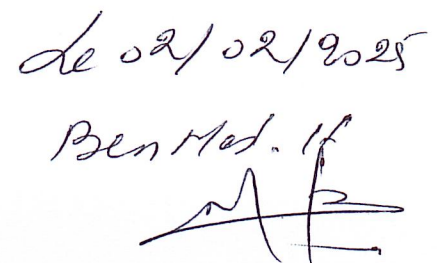 Le 02/02/2025
Ben Mad. If